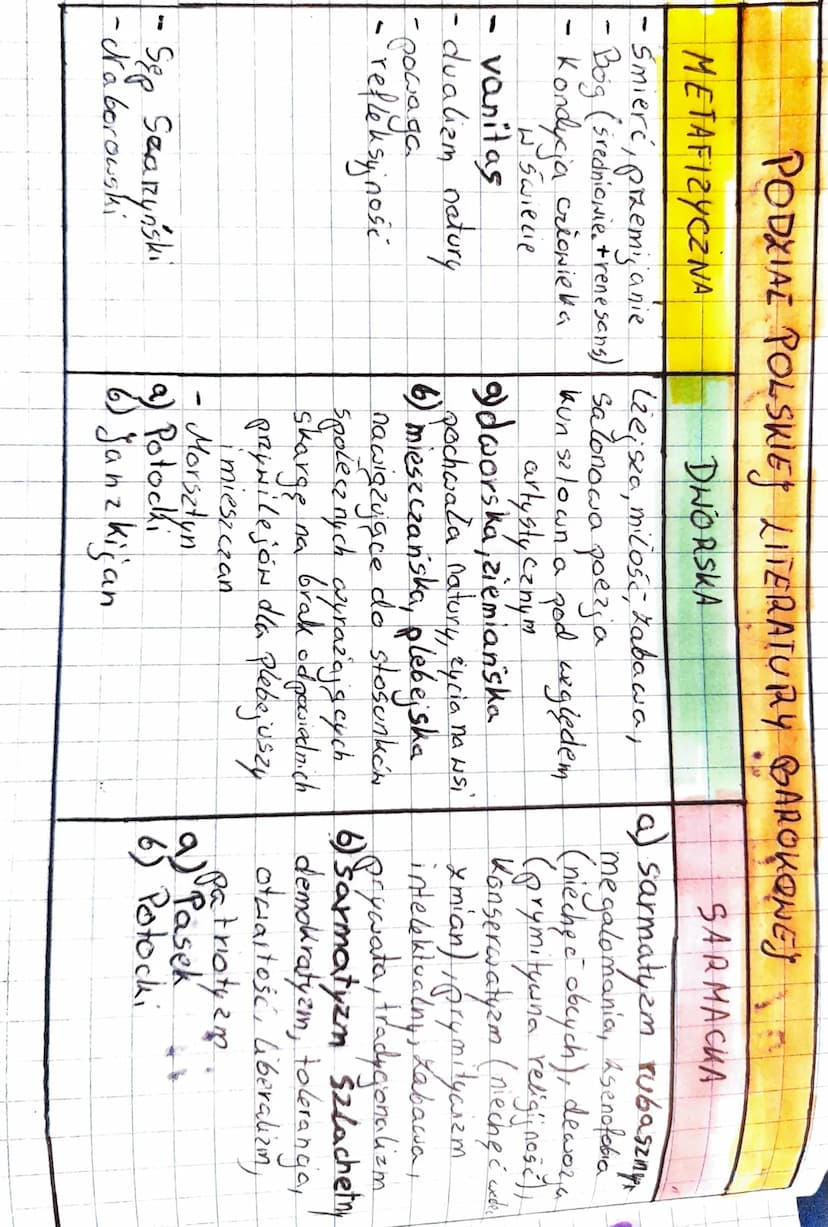 PODZIAŁ POLSKIEJ LITERATURY BAROKOWEJ
METAFIZYCZNA
- śmierć, przemijanie
- Bóg (średniowie. + renesans)
- Kondycja człowieka
w świecie
- vanitas
- dualizm natury
- powaga
- refleksyjność
- Sęp Szarzyński
- Naborowski
DWORSKA
lżejsza, miłość, zabawa,
salonowa poezja
kunsztowna pod względem
artystycznym
a) dworska, ziemiańska
pochwała natury, życia na wsi
b) mieszczańska, plebejska
nawiązujące do stosunków
społecznych wyrażających
skargę na brak odpowiednich
przywilejów dla plebejuszy
i mieszczan
- Morsztyn
a) Potocki
b) Jan z Kijan
SARMACKA
a) sarmatyzm rubaszny:
megalomania, ksenofobia
(niechęć obcych), dewocja
(prymitywna religijność),
Konserwatyzm (niechęć wobec
zmian), prymitywizm
intelektualny, zabawa,
prywata, tradycjonalizm
b) sarmatyzm szlachetny
demokratyzm, tolerancja,
otwartość, liberalizm,
patriotyzm
a) Pasek
b) Potocki